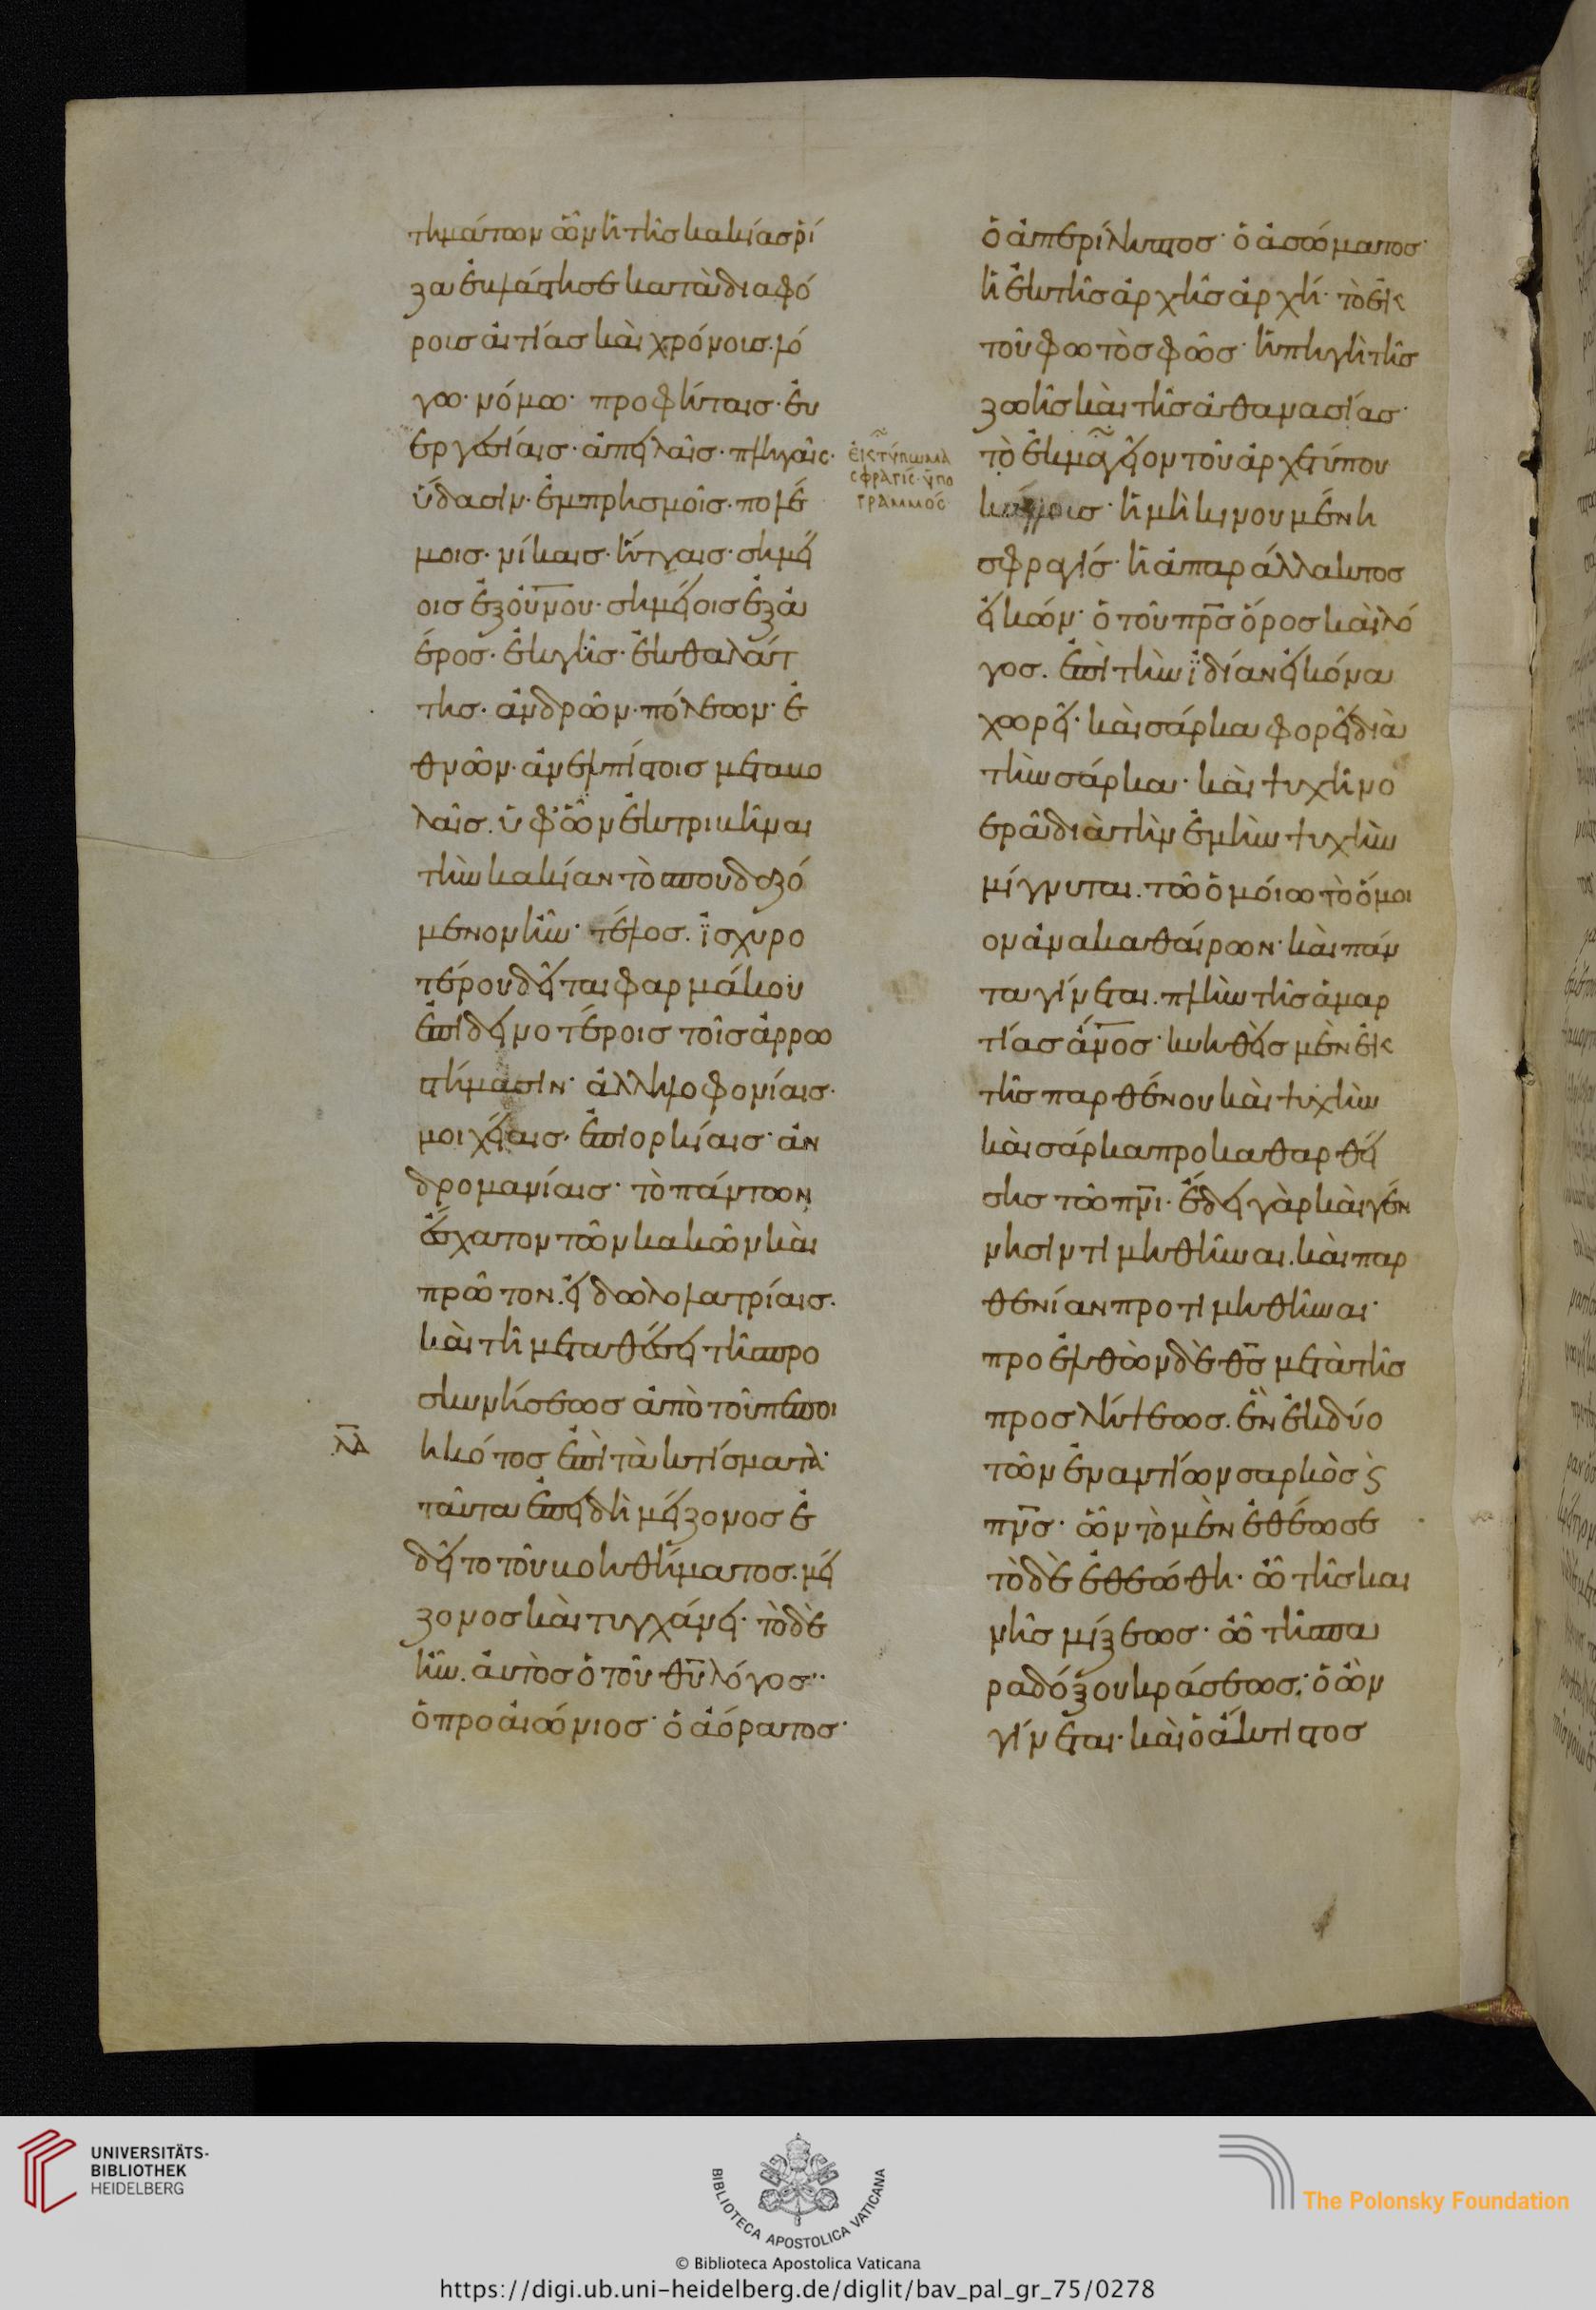 τημάτων ὧν ἡ τῆς κακίας ῥί
ζα ἐβλάστησε κατὰ διαφό
ροις αἰτίας καὶ χρόνοις. λό
γω· νόμω· προφήταις· εὐ
εργεσίαις· ἀπειλαῖς· πληγαῖς·
ὕδασιν· ἐμπρησμοῖς· πολέ
μοις· νίκαις· ἥτταις· σημεί
οις ἐξ οὐνου· σημείοις ἐξ ἀ
έρος· ἐκ γῆς· ἐκ θαλάτ
της· ἀνδρῶν· πόλεων· ἐ
θνῶν· ἀνελπίστοις μεταβο
λαῖς. ὑφ' ὧν ἐκτριβῆναι
τὴν κακίαν τὸ σπουδαζό
μενον ἦν· τέλος. ἰσχυρο
τέρου δεῖται φαρμάκου
ἐπὶ δεινοτέροις τοῖς ἀρρω
στήμασιν· ἀλληλοφονίαις·
μοιχείαις· ἐπιορκίαις· ἀν
δρομανίαις· τὸ πάντων
ἔσχατον τῶν κακῶν καὶ
πρῶτον. εἰδωλολατρίαις.
καὶ τῆ μεταθέσει τῆς προ
σκυνήσεως ἀπὸ τοῦ πεποι
ηκότος ἐπὶ τὰ κτίσματα·
λα
ταῦτα ἐπειδὴ μείζονος ἐ
δεῖτο τοῦ βοηθήματος. μεί
ζονος καὶ τυγχάνει· τὸ δὲ
ἦν. αὐτὸς ὁ τοῦ θυ λόγος··
ὁ προαιώνιος· ὁ ἀόρατος·
ἐκτύπωμα
σφραγίς· ὑπο
γραμμός
ὁ ἀπερίληπτος· ὁ ἀσώματος·
ἡ ἐκ τῆς ἀρχῆς ἀρχή· τὸ ἐκ
τοῦ φωτὸς φῶς· ἡ πηγὴ τῆς
ζωῆς καὶ τῆς ἀθανασίας·
τὸ ἐκμαγεῖον τοῦ ἀρχετύπου
κάλλους· ἡ μὴ κινουμένη
σφραγίς· ἡ ἀπαράλλακτος
εἰκών· ὁ τοῦ πρς ὅρος καὶ λό
γος. ἐπὶ τὴν ἰδίαν εἰκόνα
χωρεῖ· καὶ σάρκα φορεῖ διὰ
τὴν σάρκα· καὶ ψυχῆ νο
ερᾶ διὰ τὴν ἐμὴν ψυχὴν
μίγνυται. τῶ ὁμοίω τὸ ὅμοι
ον ἀνακαθαίρων· καὶ πάν
τα γίνεται. πλὴν τῆς ἁμαρ
τίας ἄνος· κυηθεὶς μὲν ἐκ
τῆς παρθένου καὶ ψυχὴν
καὶ σάρκα προκαθαρθεί
σης τῶ πνι· ἔδει γὰρ καὶ γέν
νησιν τιμηθῆναι. καὶ παρ
θενίαν προτιμηθῆναι·
προελθὼν δὲ θς μετὰ τῆς
προσλήψεως. ἓν ἐκ δύο
τῶν ἐναντίων σαρκὸς ϗ
πνς· ὧν τὸ μὲν ἐθέωσε
τὸ δὲ ἐθεώθη· ὢ τῆς και
νῆς μίξεως· ὢ τῆς πα
ραδόξου κράσεως· ὁ ὢν
γίνεται· καὶ ὁ ἄκτιστος
UNIVERSITÄTS-
BIBLIOTHEK
HEIDELBERG
BIBLIOTECA APOSTOLICA VATICANA
The Polonsky Foundation
© Biblioteca Apostolica Vaticana
https://digi.ub.uni-heidelberg.de/diglit/bav_pal_gr_75/0278